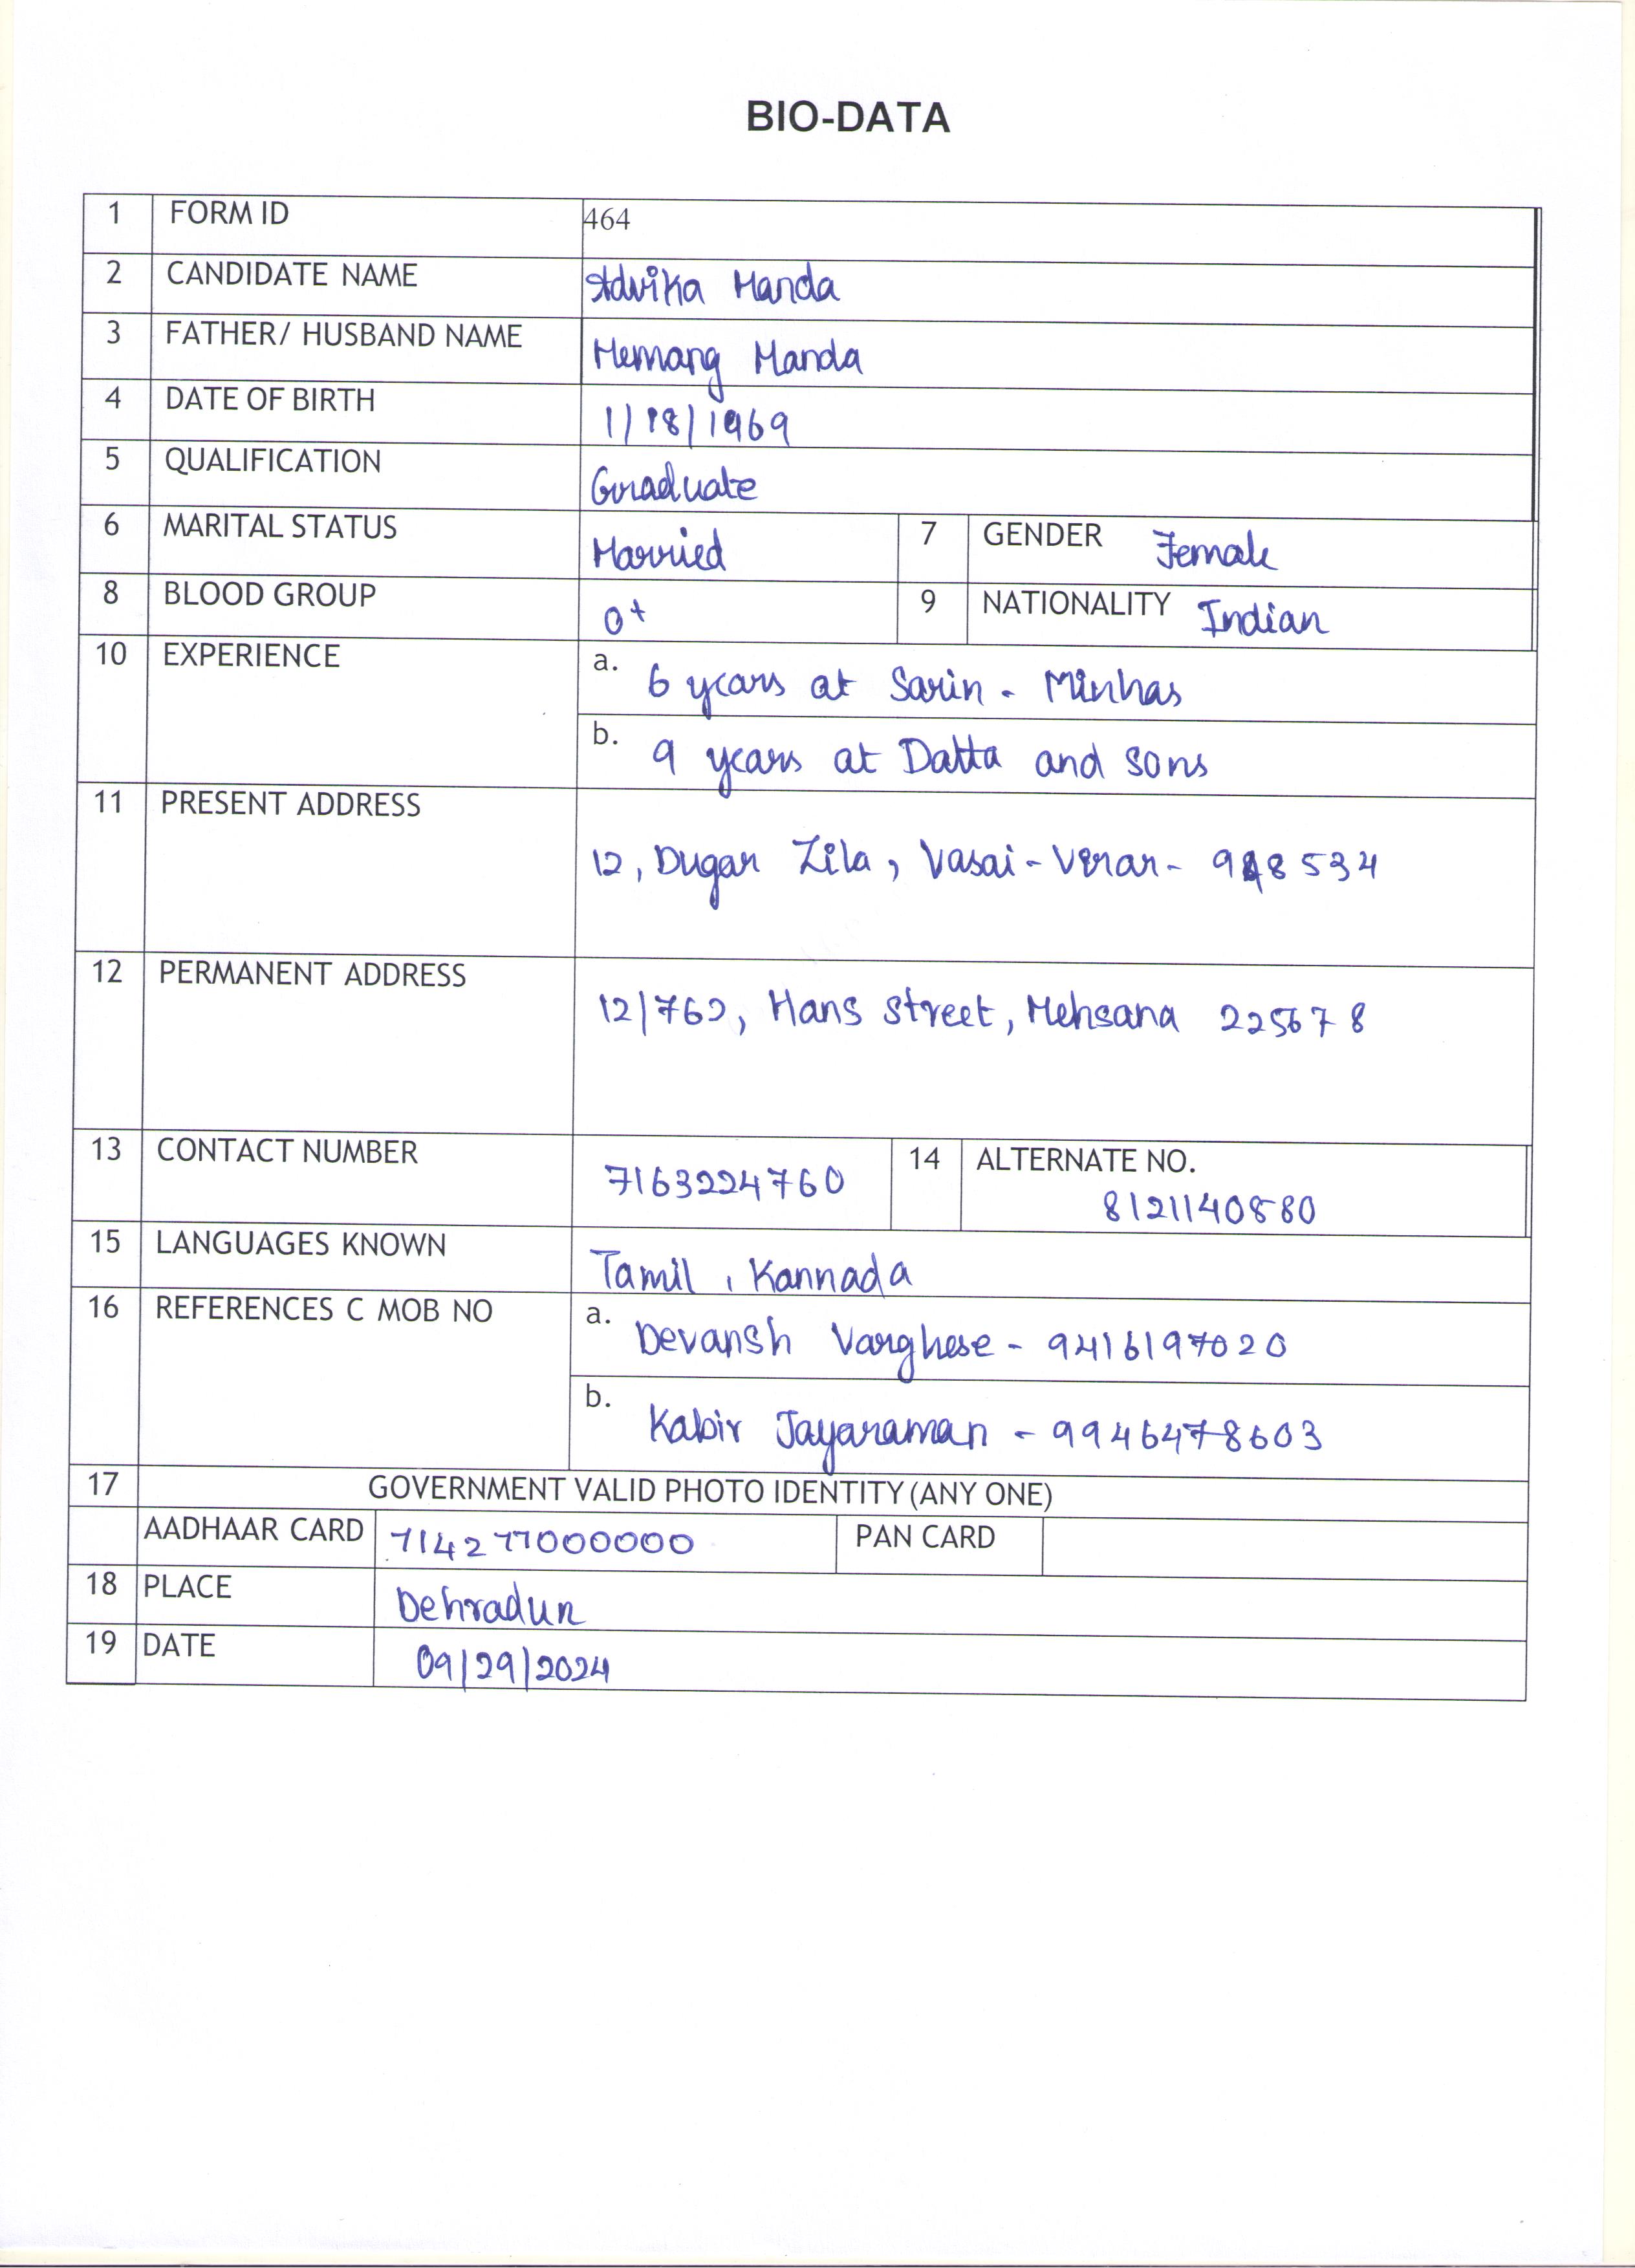 BIO-DATA
1 FORM ID 464
2 CANDIDATE NAME Advika Manda
3 FATHER/ HUSBAND NAME Hemang Manda
4 DATE OF BIRTH 1/18/1969
5 QUALIFICATION Graduate
6 MARITAL STATUS Married 7 GENDER Female
8 BLOOD GROUP O+ 9 NATIONALITY Indian
10 EXPERIENCE a. 6 years at Sarin - Minhas
b. 9 years at Datta and sons
11 PRESENT ADDRESS
12, Dugar Zila, Vasai-Virar-
12 PERMANENT ADDRESS
12/762, Hans street, Mehsana 225678
13 CONTACT NUMBER 7163224760 14 ALTERNATE NO.
15 LANGUAGES KNOWN Tamil, Kannada
16 REFERENCES C MOB NO a. Devansh Varghese - 9416197020
b. Kabir Jayaraman - 9946478603
17 GOVERNMENT VALID PHOTO IDENTITY (ANY ONE)
AADHAAR CARD 714277000000 PAN CARD
18 PLACE Dehradun
19 DATE 09/29/2024